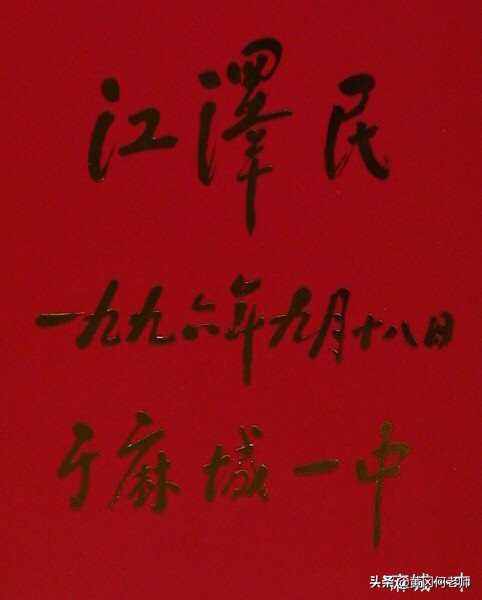 江澤民
一九九六年九月十八日
于麻城一中
麻城一中
头条 @黄冈何老师